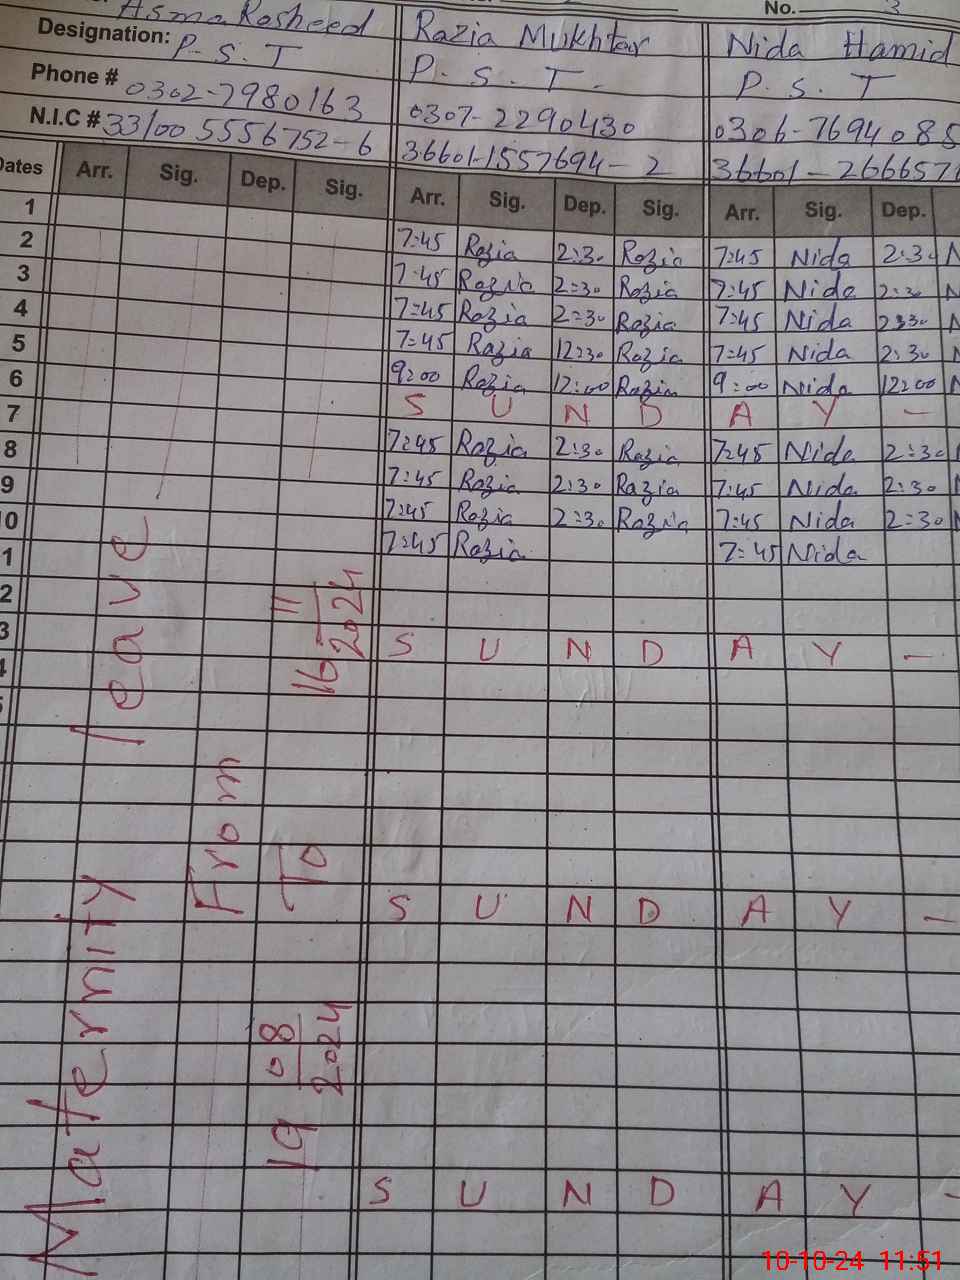 No. 3
Asma Rasheed Razia Mukhtar Nida Hamid
Designation: P.S.T P.S.T. P.S.T
Phone # 0302-7980163 0307-2290430 0306-769408
N.I.C # 33100 5556752-6 36601-1557694-2 36601-266657
Dates Arr. Sig. Dep. Sig. Arr. Sig. Dep. Sig. Arr. Sig. Dep.
1
2 7:45 Razia 2:30 Razia 7:45 Nida 2:30
3 7:45 Razia 2=30 Razia 7:45 Nida 2:30
4 7=45 Razia 2=30 Razia 7:45 Nida 2:30
5 7=45 Razia 12:30 Razia 7:45 Nida 2:30
6 9:00 Razia 12:00 Razia 9:00 Nida 12:00
7 S U N D A Y -
8 7:45 Razia 2:30 Razia 7:45 Nida 2:30
9 7:45 Razia 2:30 Razia 7:45 Nida 2:30
0 7:45 Razia 2=30 Razia 7:45 Nida 2=30
1 7:45 Razia 7:45 Nida
2
3 S U N D A Y -
4
S U N D A Y -
S U N D A Y -
Maternity leave
From 19 08 2024
To 16 11 2024
10-10-24 11:51